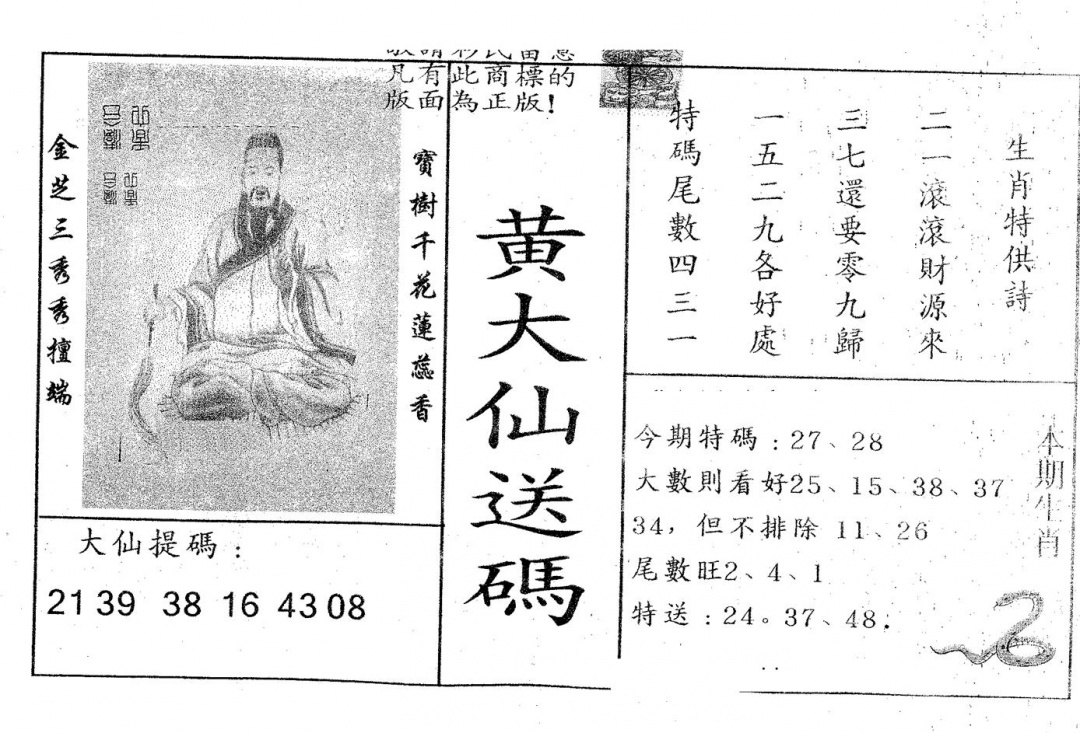 凡有此商標的
版面為正版!
金芝三秀秀擅端
寶樹千花蓮蕊香
黃大仙送碼
大仙提碼:
21 39 38 16 43 08
生肖特供詩
二一滾滾財源來
三七還要零九歸
一五二九各好處
特碼尾數四三一
今期特碼:27、28
大數則看好25、15、38、37
34,但不排除 11、26
尾數旺2、4、1
特送:24。37、48.
本期生肖